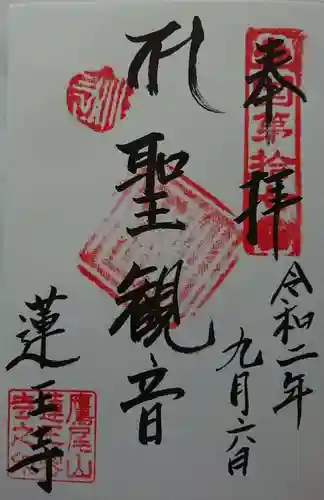 奉拝
令和二年
九月六日
聖観音
蓮王寺
鷹尾山